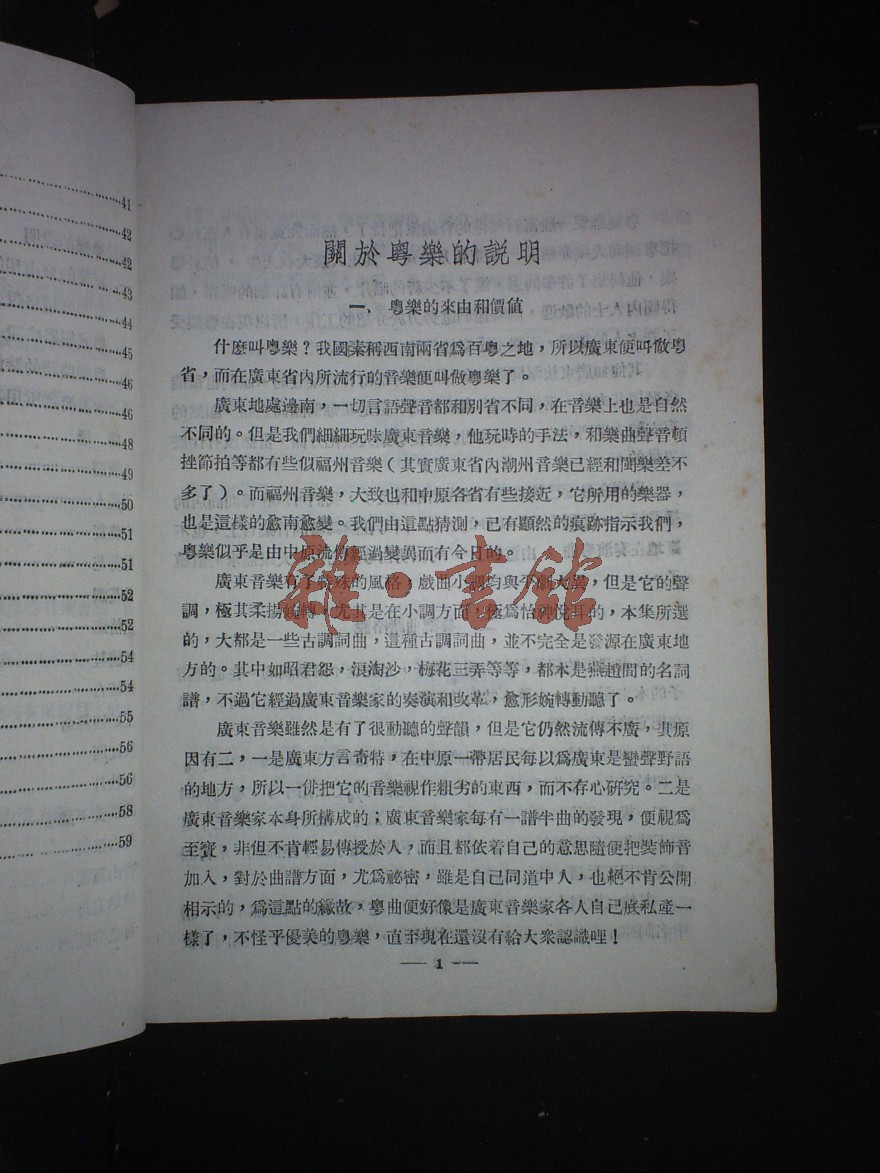 41
42
42
43
44
45
46
46
48
49
50
51
51
52
52
54
54
55
56
56
58
59
關於粵樂的説明
一、粵樂的來由和價值
什麼叫粵樂?我國素稱西南兩省爲百粵之地,所以廣東便叫做粵
省,而在廣東省內所流行的音樂便叫做粵樂了。
廣東地處邊南,一切言語聲音都和別省不同,在音樂上也是自然
不同的。但是我們細細玩味廣東音樂,他玩時的手法,和樂曲聲音頓
挫節拍等都有些似福州音樂(其實廣東省內潮州音樂已經和閩樂差不
多了)。而福州音樂,大致也和中原各省有些接近,它所用的樂器,
也是這樣的愈南愈變。我們由這點猜測,已有顯然的痕跡指示我們,
粵樂似乎是由中原流傳經過變異而有今日的。
廣東音樂有了特殊的風格,戲曲小調均與平劇大異,但是它的聲
調,極其柔揚婉轉,尤其是在小調方面,極爲怡神悅耳的,本集所選
的,大都是一些古調詞曲,這種古調詞曲,並不完全是發源在廣東地
方的。其中如昭君怨,浪淘沙,梅花三弄等等,都本是燕趙間的名詞
譜,不過它經過廣東音樂家的奏演和改革,愈形婉轉動聽了。
廣東音樂雖然是有了很動聽的聲韻,但是它仍然流傳不廣,其原
因有二,一是廣東方言奇特,在中原一帶居民每以爲廣東是蠻聲野語
的地方,所以一併把它的音樂視作粗劣的東西,而不存心研究。二是
廣東音樂家本身所構成的;廣東音樂家每有一譜半曲的發現,便視爲
至寶,非但不肯輕易傳授於人,而且都依着自己的意思隨便把裝飾音
加入,對於曲譜方面,尤爲祕密,雖是自己同道中人,也絕不肯公開
相示的,爲這點的緣故,粵曲便好像是廣東音樂家各人自己底私產一
樣了,不怪乎優美的粵樂,直至現在還沒有給大衆認識哩!
— 1 —
雜·書館